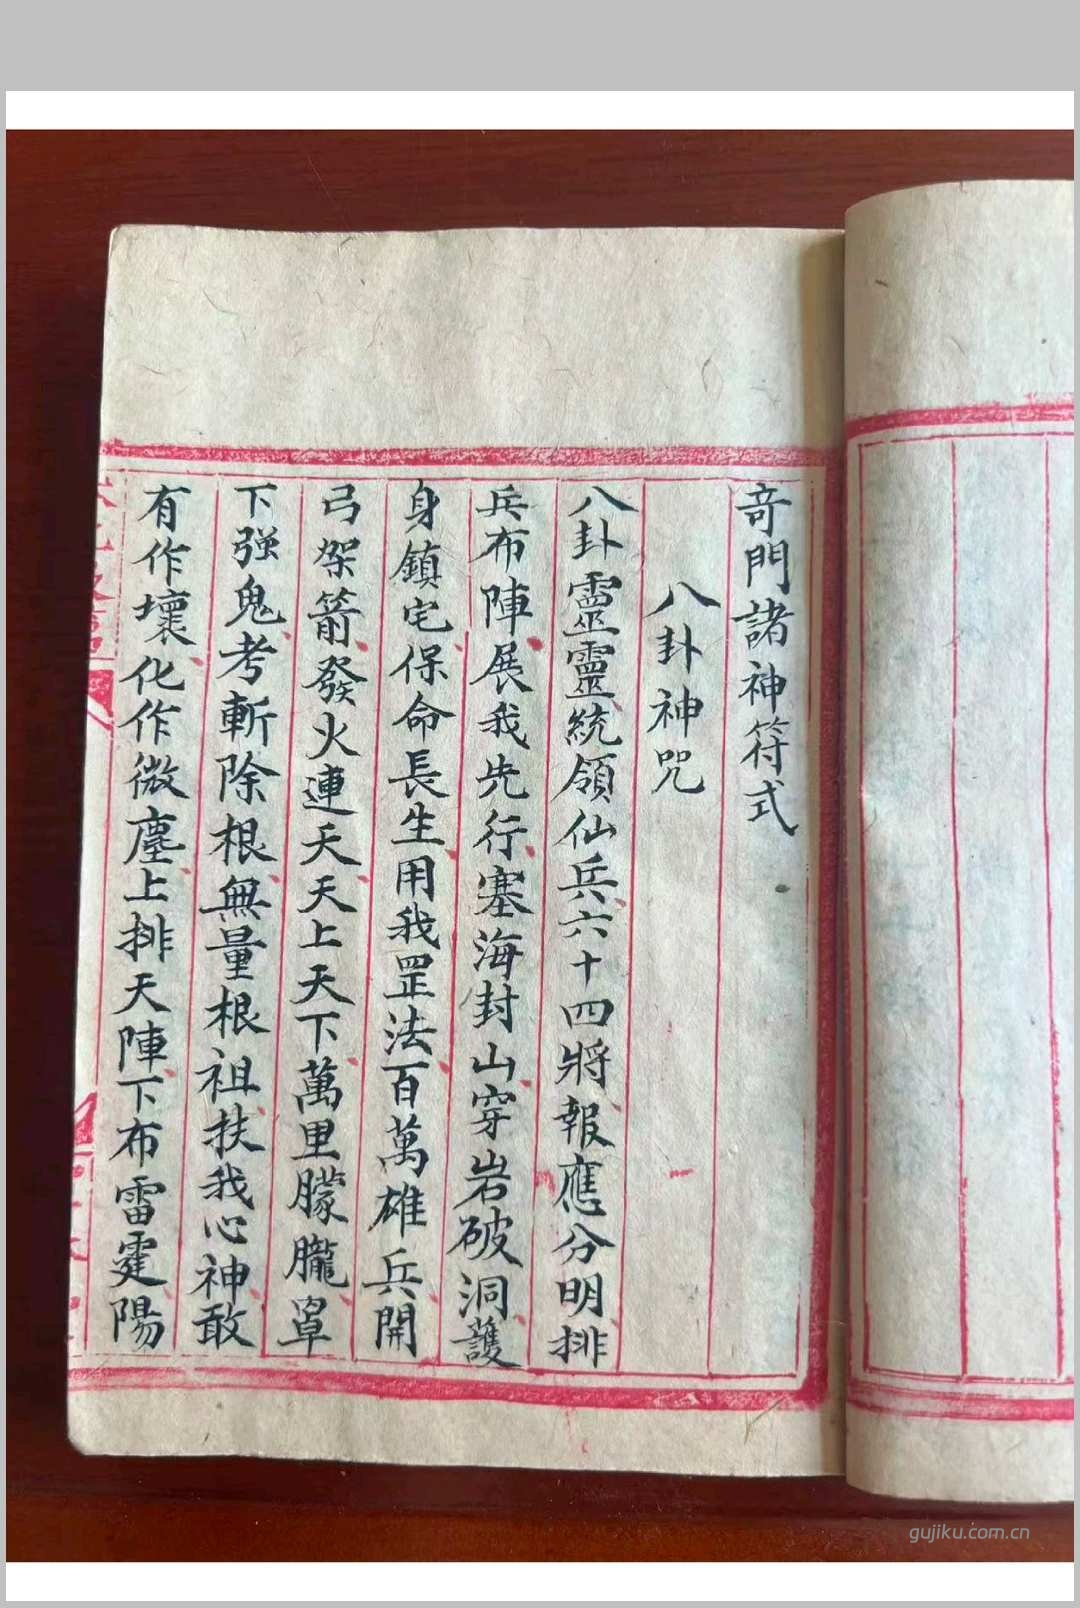 奇門諸神符式
八卦神咒
八卦靈靈統領仙兵六十四將報應分明排
兵布陣展我先行塞海封山穿岩破洞護
身鎮宅保命長生用我罡法百萬雄兵開
弓架箭發火連天天上天下萬里朦朧罩
下强鬼考斬除根無量根祖扶我心神敢
有作壞化作微塵上排天陣下布雷霆陽
gujiku.com.cn